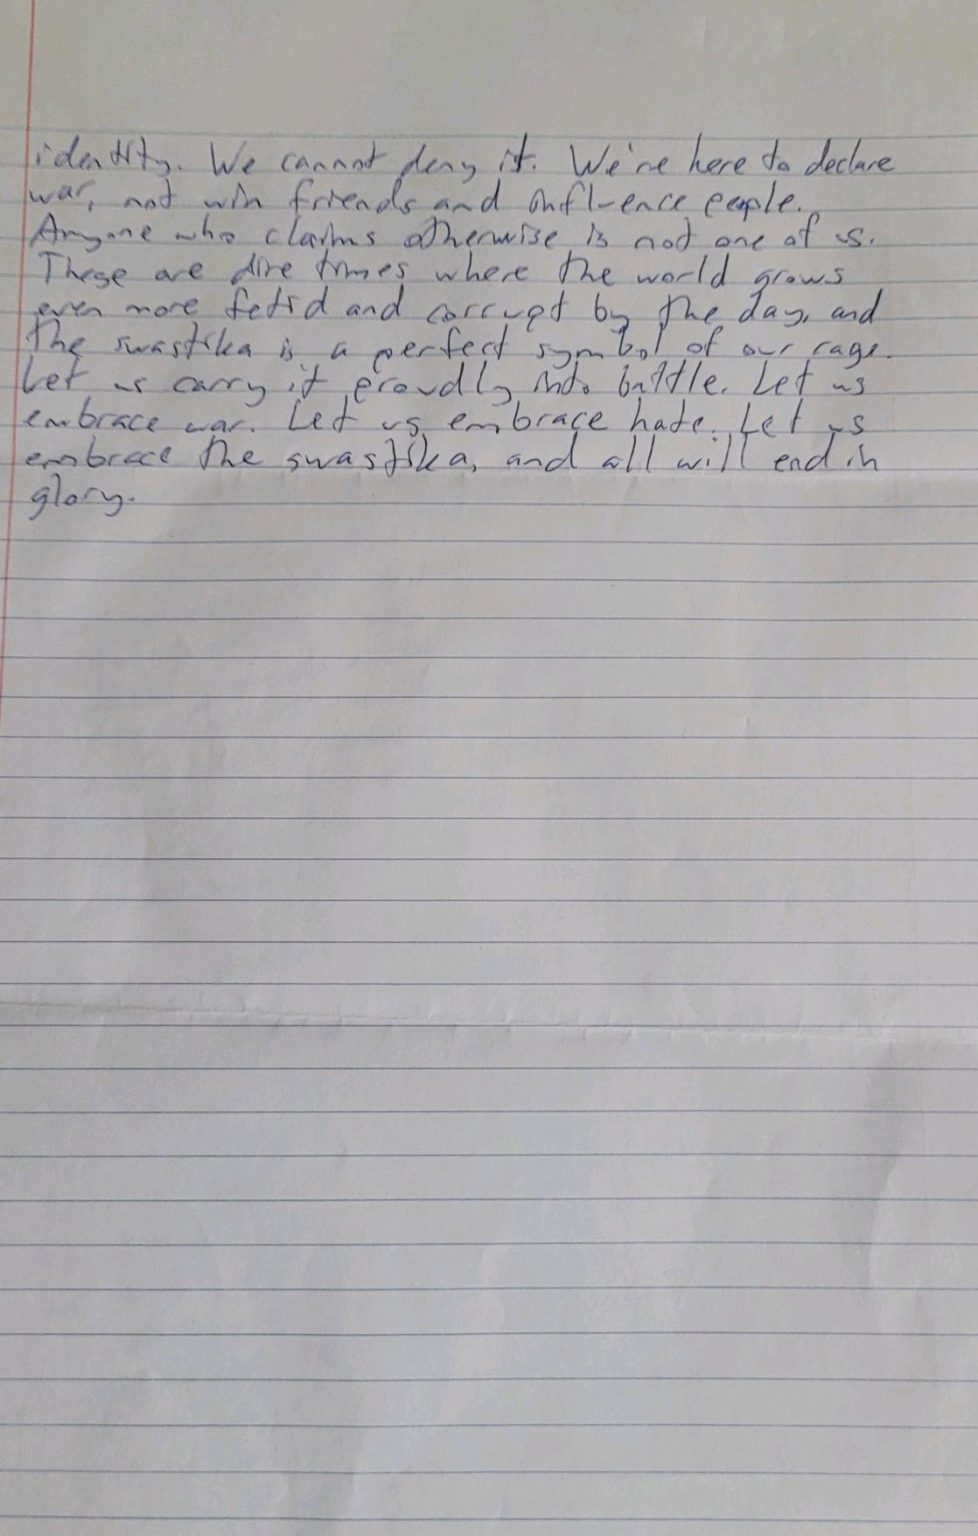 identity. We cannot deny it. We're here to declare
war, not win friends and influence people.
Anyone who claims otherwise is not one of us.
These are dire times where the world grows
even more fetid and corrupt by the day, and
the swastika is a perfect symbol of our rage.
Let us carry it proudly into battle. Let us
embrace war. Let us embrace hate. Let us
embrace the swastika, and all will end in
glory.